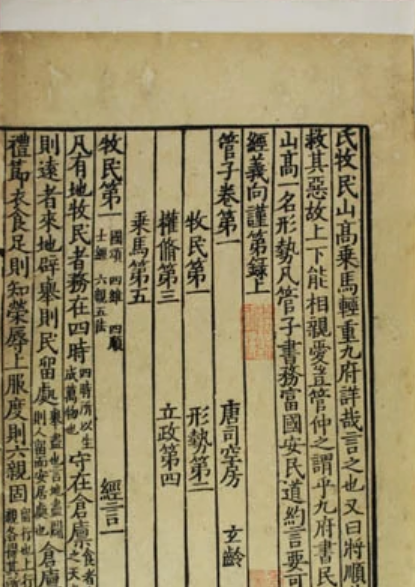 氏牧民山高乗馬輕重九府詳哉言之也又曰將順
救其惡故上下能相親愛豈管仲之謂乎九府書民
山高一名形勢凡管子書務富國安民道約言要可
經義向謹第錄上
管子卷第一 唐司空房 玄齡
牧民第一 形勢第二
權脩第三 立政第四
乗馬第五
牧民第一 國頌 四維 四順 士經 六親五法 經言一
凡有地牧民者務在四時 四時所以生成萬物也 守在倉廩 食者
則遠者來地辟舉則民留處 舉盡也言地盡闢則人留而安居處也 倉廩
禮節衣食足則知榮辱上服度則六親固